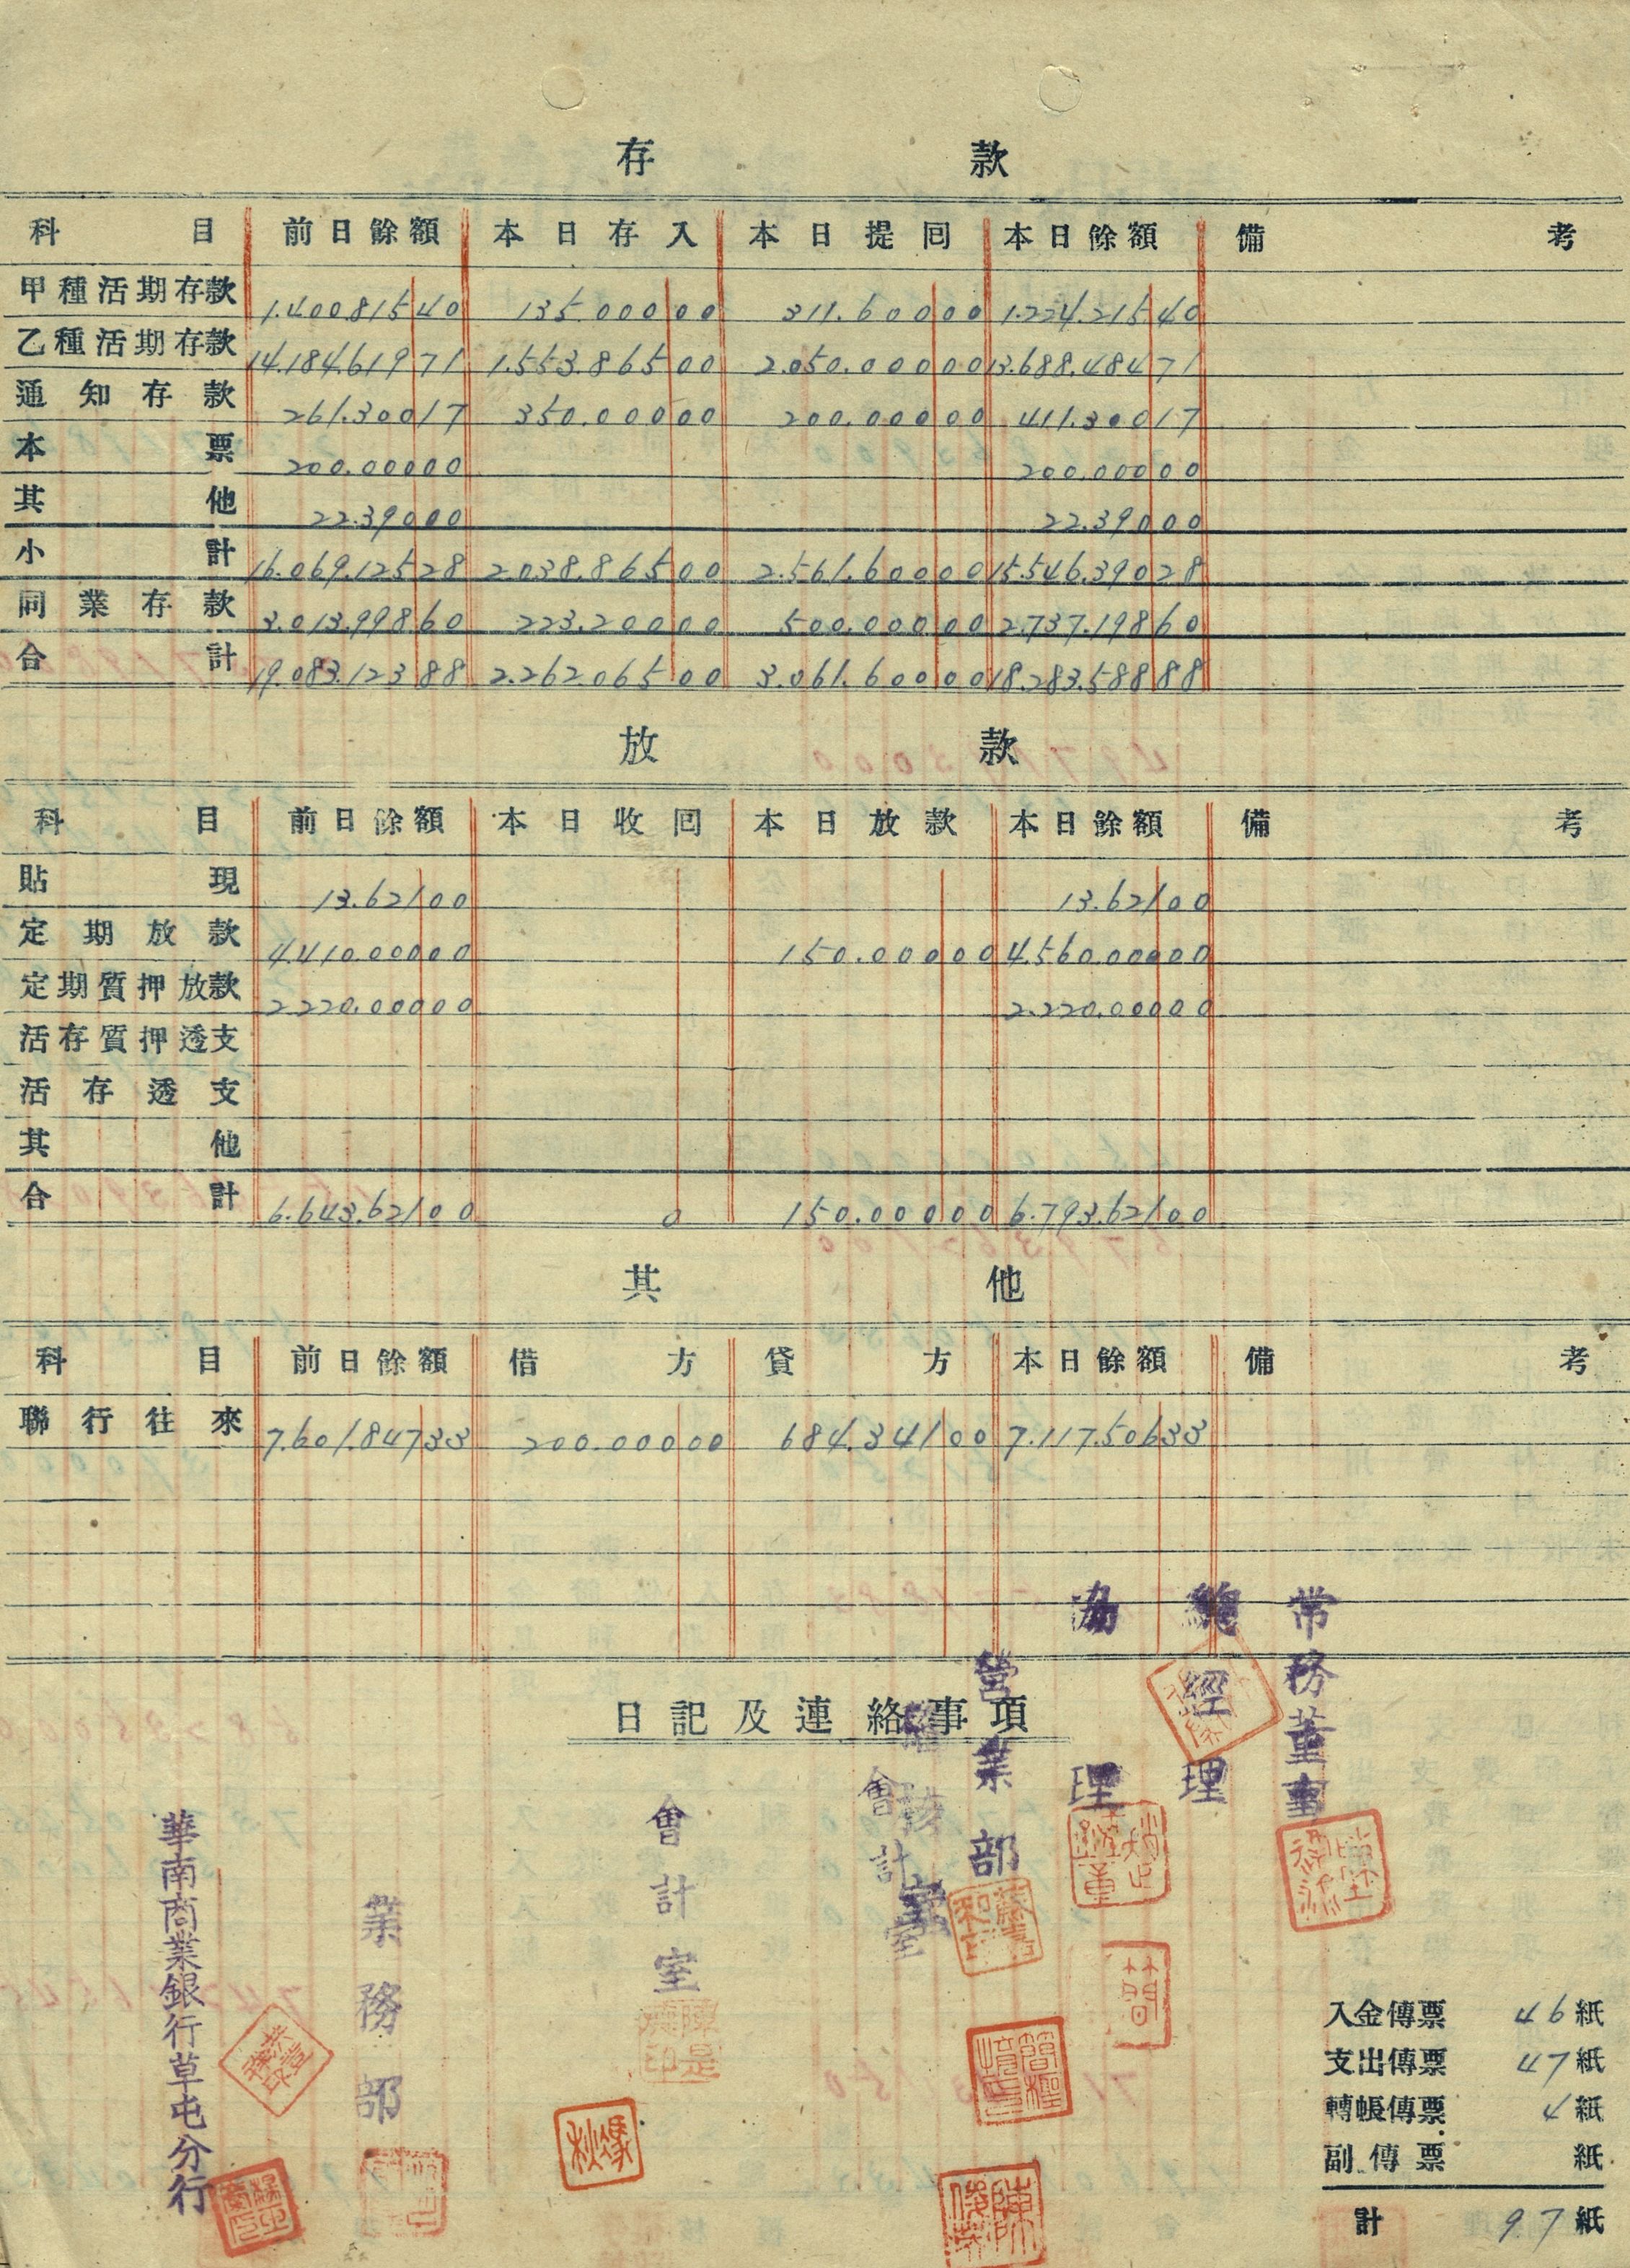 存款
科目 前日餘額 本日存入 本日提囘 本日餘額 備考
甲種活期存款 1.400.815 40 135.000 00 311.600 00 1.224.215 40
乙種活期存款 14.184.619 71 1.553.865 00 2.050.000 00 13.688.484 71
通知存款 261.300 17 350.000 00 200.000 00 411.300 17
本票 200.000 00 200.000 00
其他 22.390 00 22.390 00
小計 16.069.125 28 2.038.865 00 2.561.600 00 15.546.390 28
同業存款 3.013.998 60 223.200 00 500.000 00 2.737.198 60
合計 19.083.123 88 2.262.065 00 3.061.600 00 18.283.588 88
放款
科目 前日餘額 本日收囘 本日放款 本日餘額 備考
貼現 13.621 00 13.621 00
定期放款 4.410.000 00 150.000 00 4.560.000 00
定期質押放款 2.220.000 00 2.220.000 00
活存質押透支
活存透支
其他
合計 6.643.621 00 0 150.000 00 6.793.621 00
其他
科目 前日餘額 借方 貸方 本日餘額 備考
聯行往來 7.601.847 33 200.000 00 684.341 00 7.117.506 33
日記及連絡事項
常務董事
總經理
協理
營業部
會計室
會計室
業務部
華南商業銀行草屯分行
簡
入金傳票 46 紙
支出傳票 47 紙
轉帳傳票 4 紙
副傳票 紙
計 97 紙